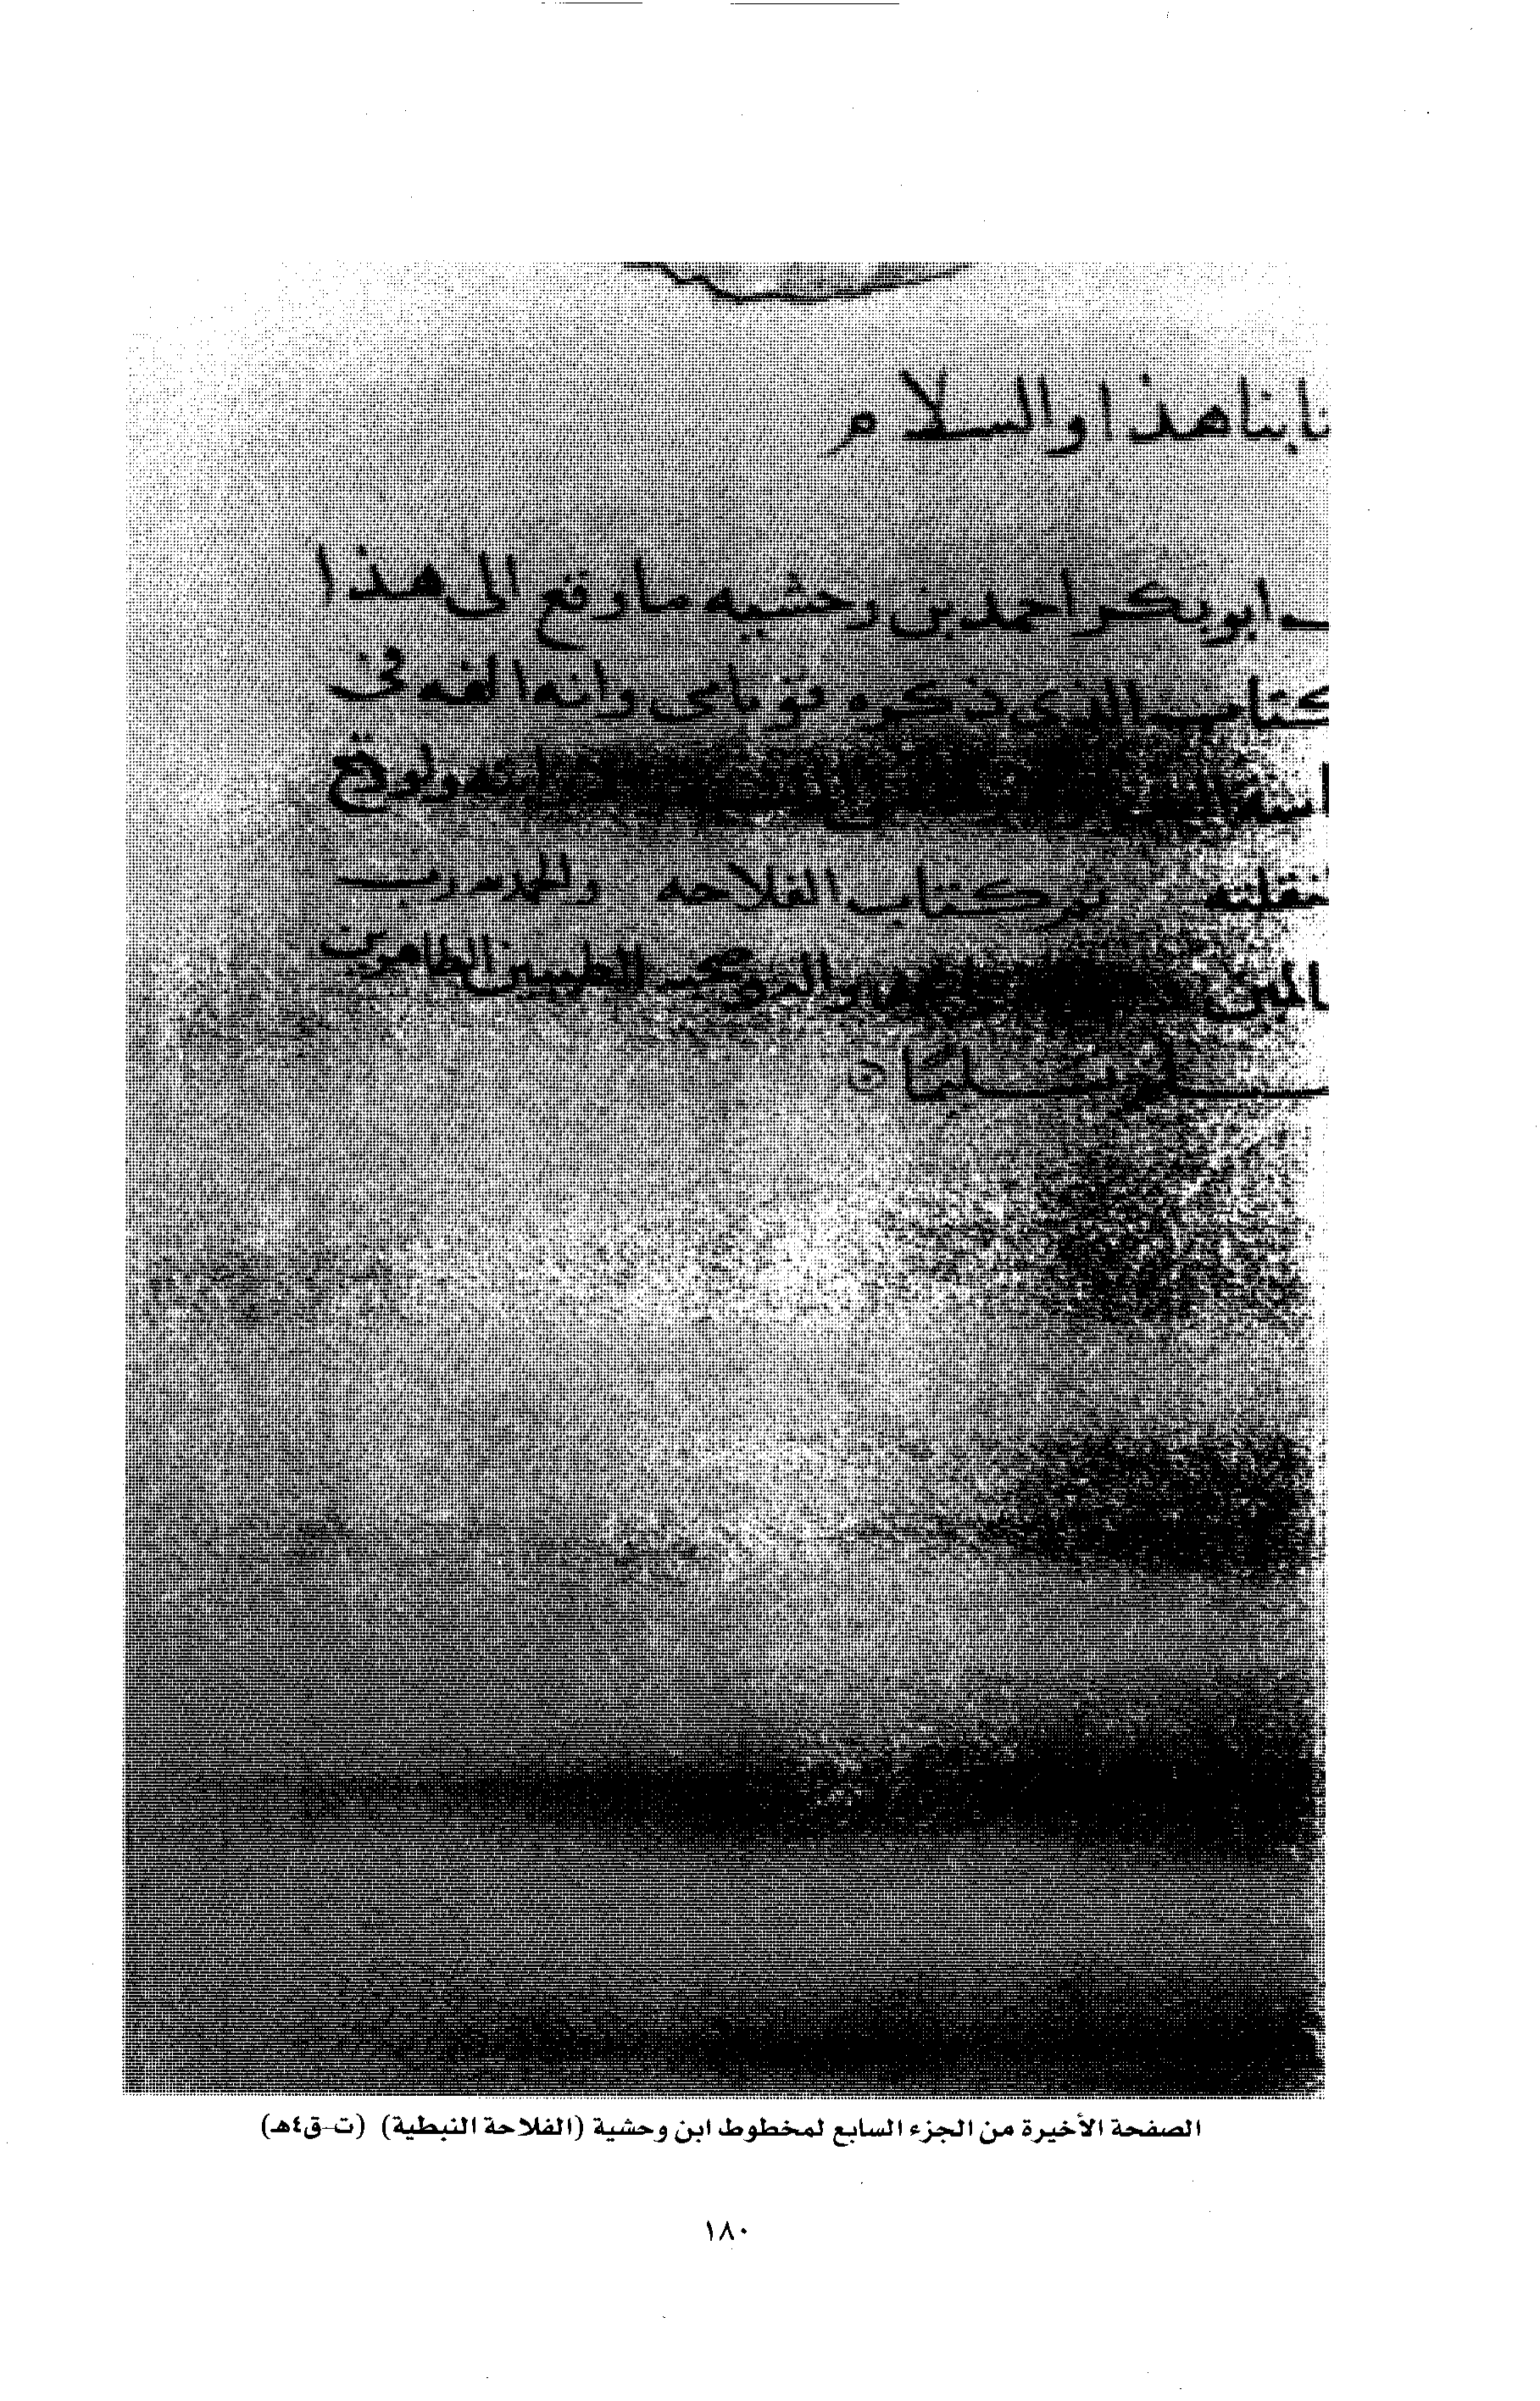 ـابنا هذا والسلام
ابو بكر احمد بن وحشيه ما وقع الى هذا
كتاب الذى ذكره قوثامى وانه الفه فى
ولو وقع
لنقلته تم كتاب الفلاحه والحمد لله رب
ـالمين واله وصحبه الطيبين الطاهرين
ـلم تسليمًا
الصفحة الأخيرة من الجزء السابع لمخطوط ابن وحشية (الفلاحة النبطية) (ت-ق٤هـ)
١٨٠